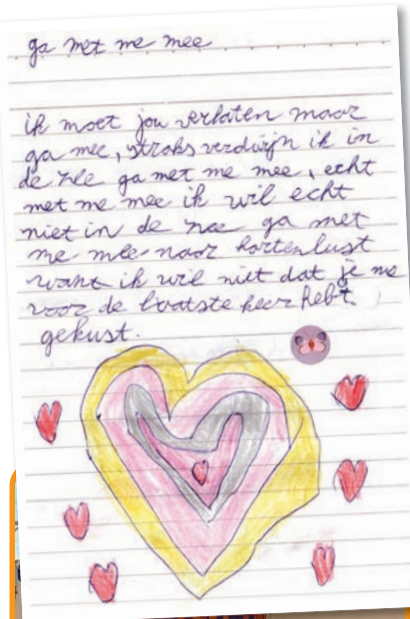 ga met me mee
ik moet jou verlaten maar
ga mee, straks verdwijn ik in
de zee ga met me mee, echt
met me mee ik wil echt
niet in de zee ga met
me mee naar hartenlust
want ik wil niet dat je me
voor de laatste keer hebt
gekust.